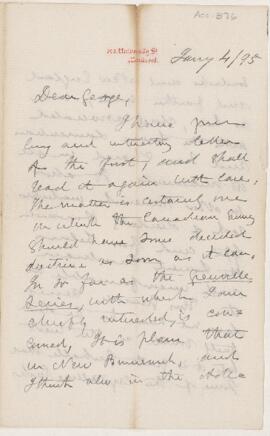 Acc-576
University St
Montreal
Jany 4/95
Dear George,
I have your
long and interesting letter
of the first, and shall
read it again with care.
The matter is certainly one
on which the Canadian Survey
should have some decided
doctrine as soon as it can.
In so far as the Grenville
Series, with which I am
chiefly interested, is con
cerned, it is plain that
in New Brunswick, and
I think also in the